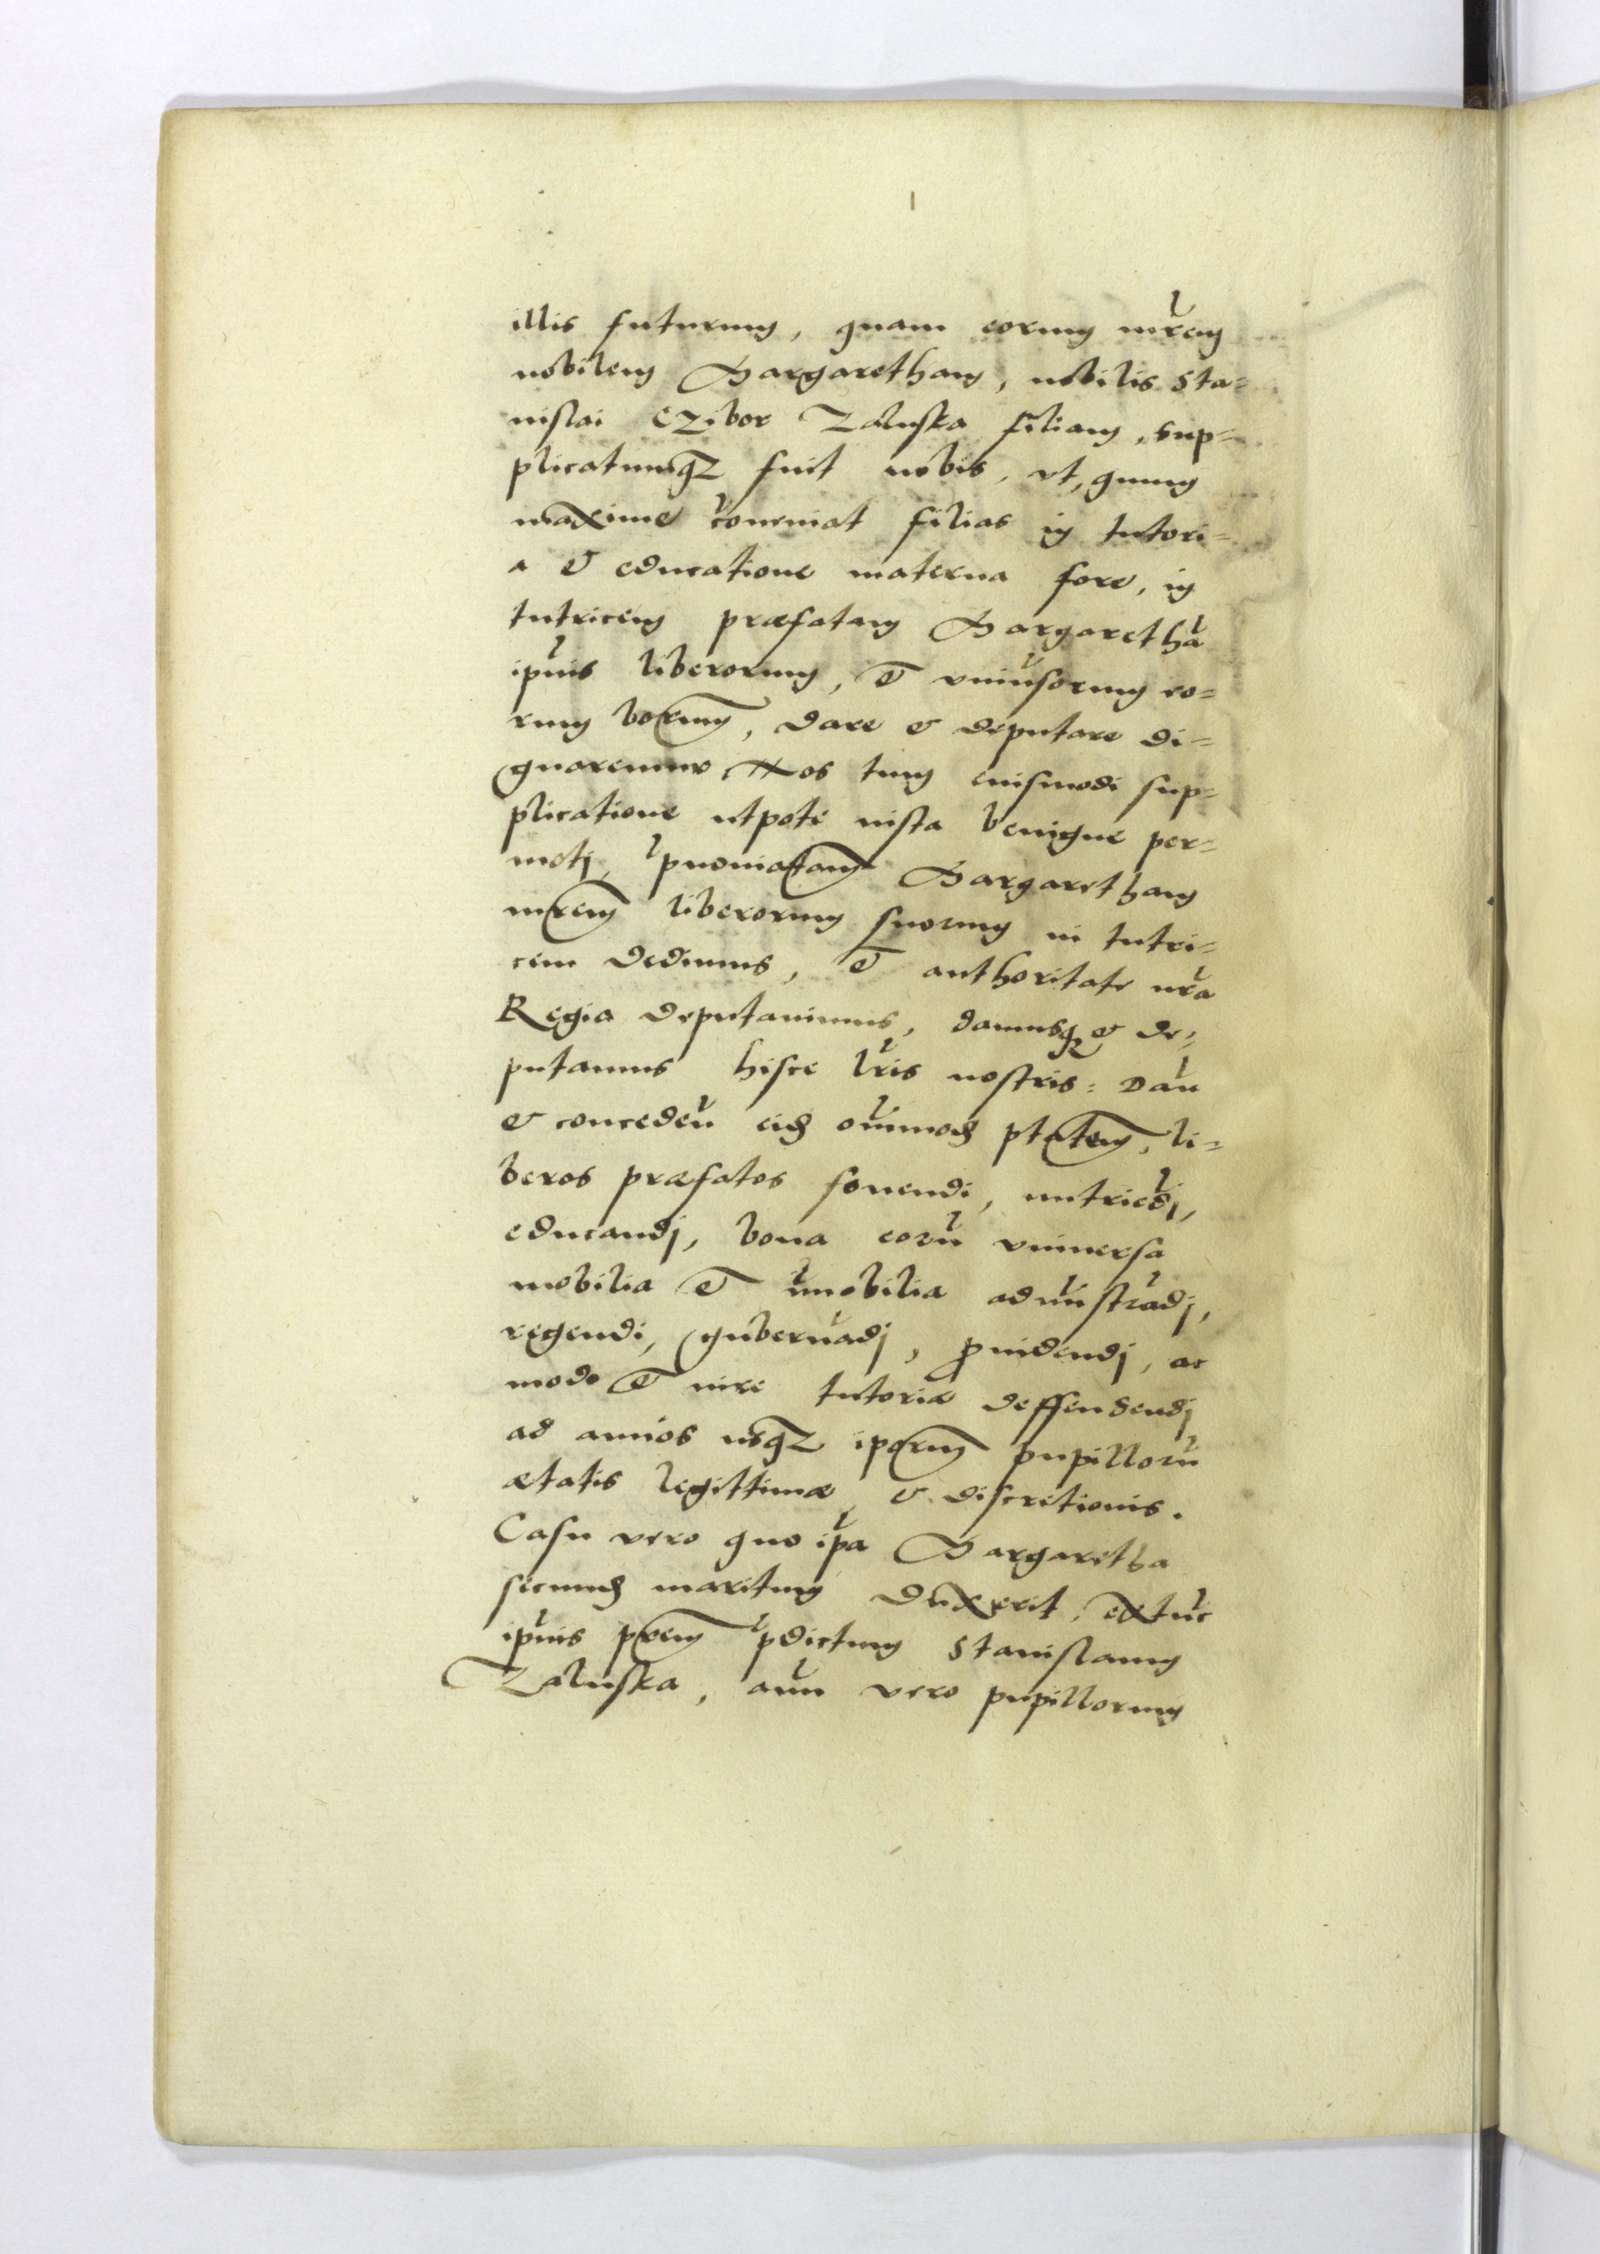 illis futurum, quam eorum mr̃em
nobilem Margaretham, nobilis Sta=
nislai Czibor Zaluska filiam, sup=
plicatumqz fuit nobis, vt, quum
maxime conueniat filias in tutori=
a & educatione materna fore, in
tutricem præfatam Margarethã
ipĩus liberorum, et vniũsorum eo=
rum bonorum, dare & deputare di=
gnaremur Nos tum eiusmodi sup=
plicatione utpote iusta benigne per=
motj, p̃nominatam Margaretham
mr̃em liberorum suorum in tutri=
cem dedimus, et authoritate nr̃a
Regia deputauimus, damusqz & de=
putamus hisce lr̃is nostris: Dañ
& concedeñ eid. om̃imod. ptãtem, li=
beros præfatos fouendi, nutriẽdj,
educandj, bona eorũ vniuersa
mobilia et im̃obilia admĩstrãdj,
regendi, gubernãdj, prouidendj, ac
modo et iure tutoriæ deffendendj
ad annos usqz ipõrum pupillorũ
ætatis legittimæ & discretionis.
Casu vero quo ip̃a Margaretha
secund. maritum duxerit, extũc
ipĩus pr̃em p̃dictum Stanislaum
Zaluska, auũ vero pupillorum